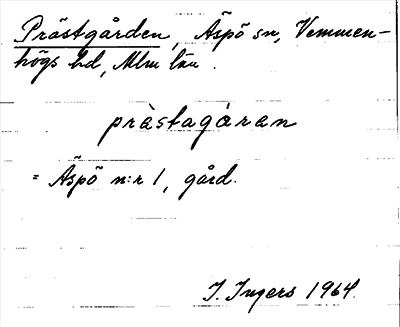 Prästgården, Äspö sn, Vemmen-
högs hd, Mlm län.
prästagåren
= Äspö n:r 1, gård.
I. Ingers 1964.